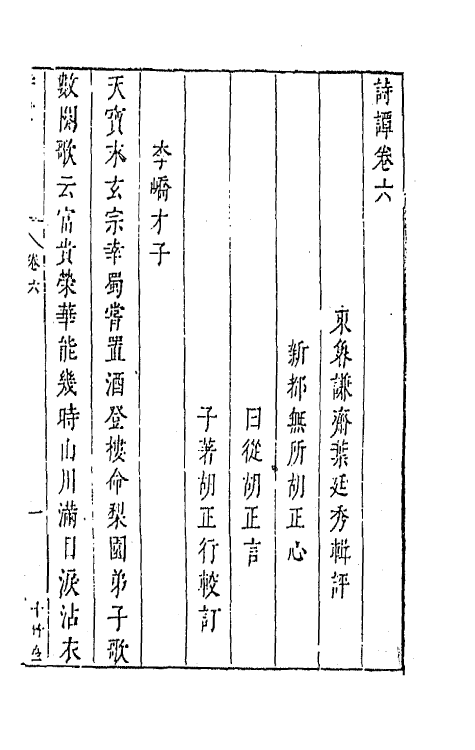 詩譚卷六
東魯謙齋葉廷秀輯評
新都無所胡正心
曰從胡正言
子著胡正行較訂
李嶠才子
天寶末玄宗幸蜀嘗置酒登樓命梨園弟子歌
數闋歌云富貴榮華能幾時山川滿目淚沾衣
卷六
一
十竹